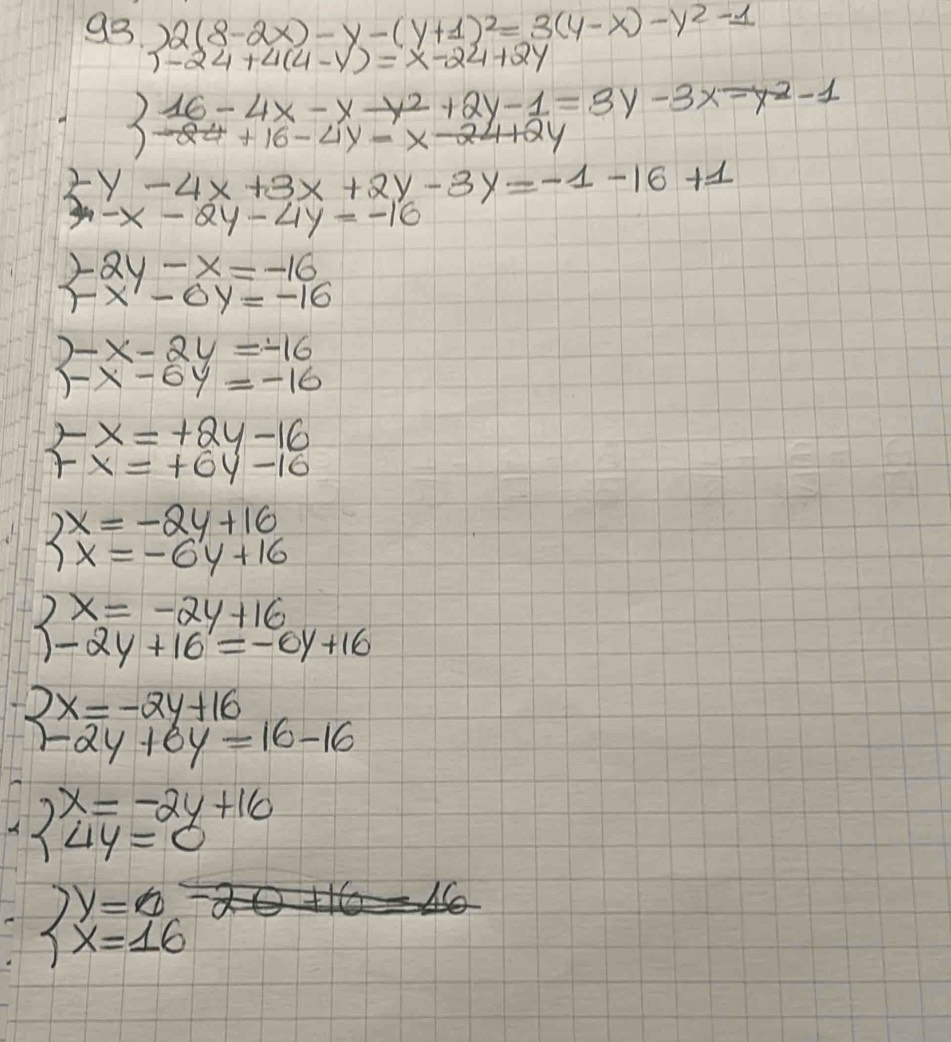 93. { 2(8-2x) - y - (y+1)² = 3(y-x) - y² - 1
{ -24 + 4(4-y) = x - 24 + 2y
{ 16 - 4x - y - y² + 2y - 1 = 3y - 3x - y² - 1
{ -24 + 16 - 4y = x - 24 + 2y
{ -y - 4x + 3x + 2y - 3y = -1 - 16 + 1
{ -x - 2y - 4y = -16
{ -2y - x = -16
{ -x - 6y = -16
{ -x - 2y = -16
{ -x - 6y = -16
{ -x = +2y - 16
{ -x = +6y - 16
{ x = -2y + 16
{ x = -6y + 16
{ x = -2y + 16
{ -2y + 16 = -6y + 16
{ x = -2y + 16
{ -2y + 6y = 16 - 16
{ x = -2y + 16
{ 4y = 0
{ y = 0 -20 + 16 = 16
{ x = 16